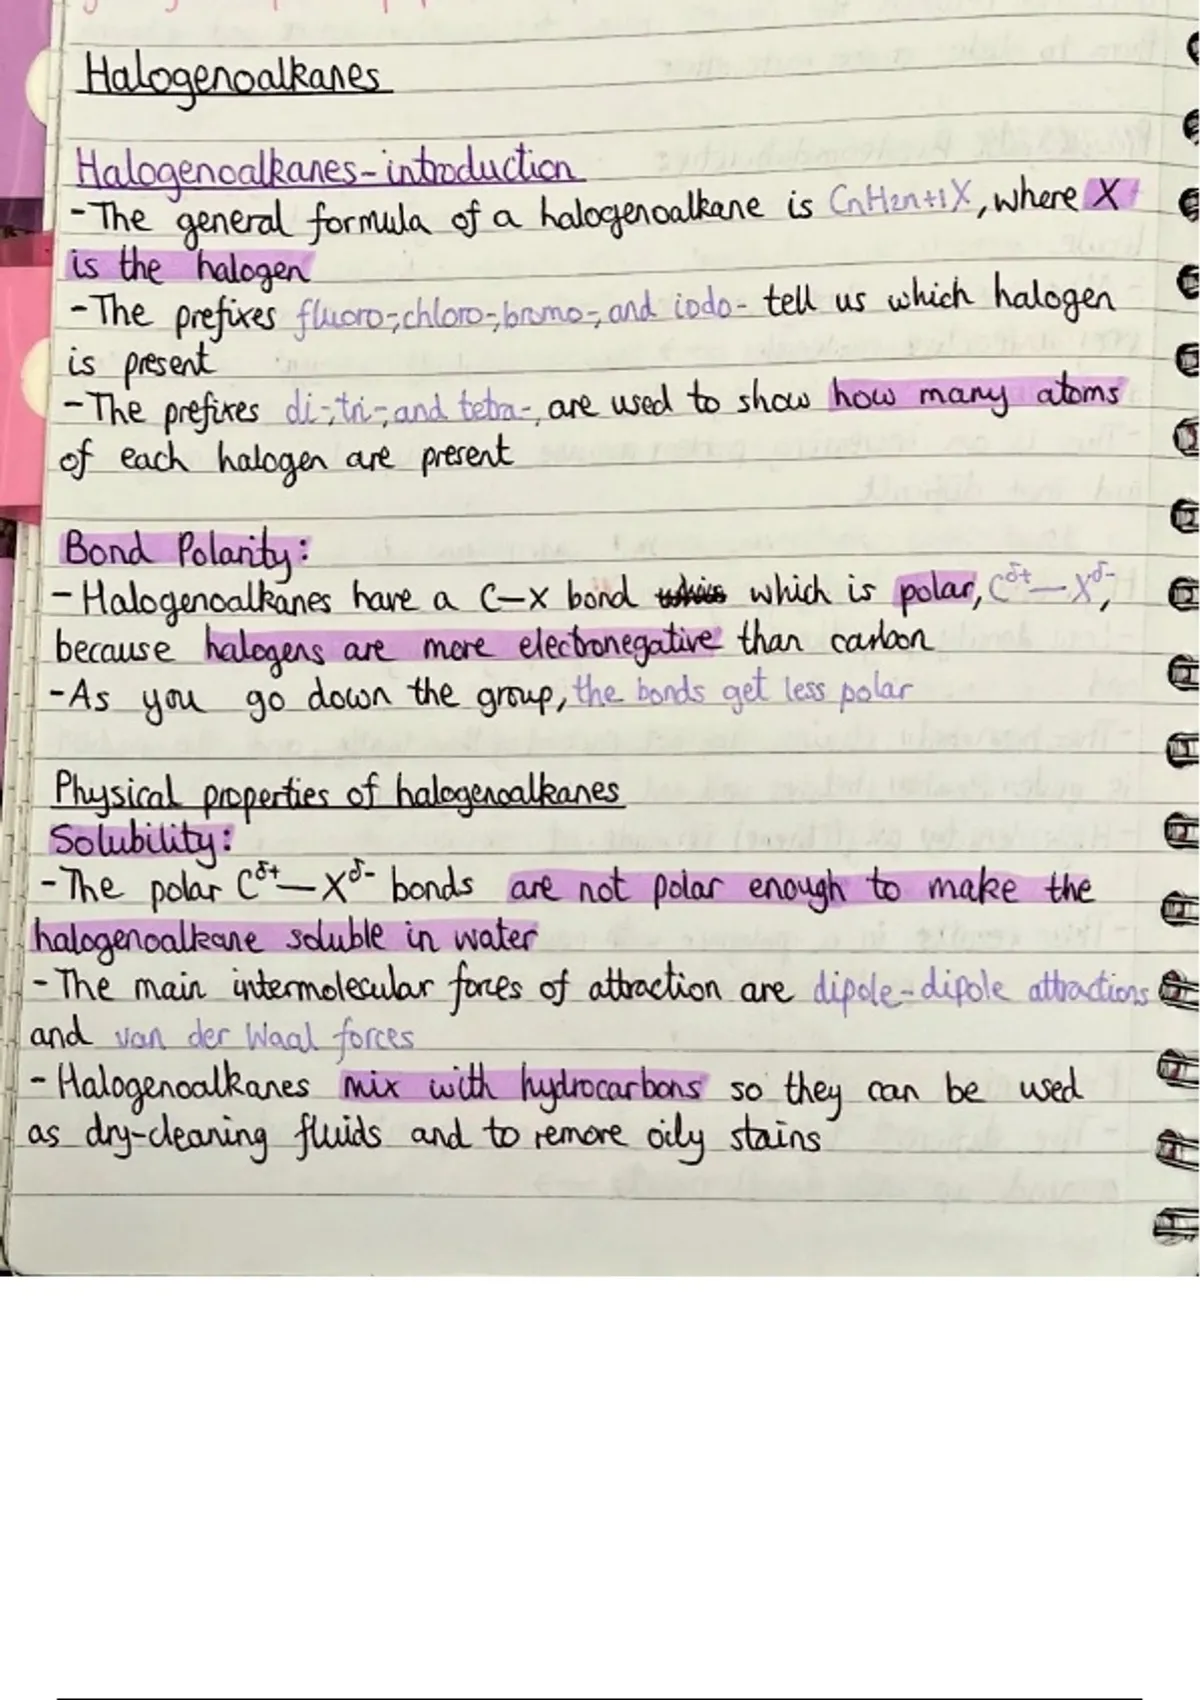 Halogenoalkanes
Halogenoalkanes - introduction
- The general formula of a halogenoalkane is CnH2n+1X, where X
is the halogen
- The prefixes fluoro-, chloro-, bromo-, and iodo- tell us which halogen
is present
- The prefixes di-, tri-, and tetra-, are used to show how many atoms
of each halogen are present
Bond Polarity:
- Halogenoalkanes have a C-X bond which is polar, Cδ+—Xδ-,
because halogens are more electronegative than carbon
- As you go down the group, the bonds get less polar
Physical properties of halogenoalkanes
Solubility:
- The polar Cδ+—Xδ- bonds are not polar enough to make the
halogenoalkane soluble in water
- The main intermolecular forces of attraction are dipole-dipole attractions
and van der Waal forces
- Halogenoalkanes mix with hydrocarbons so they can be used
as dry-cleaning fluids and to remove oily stains